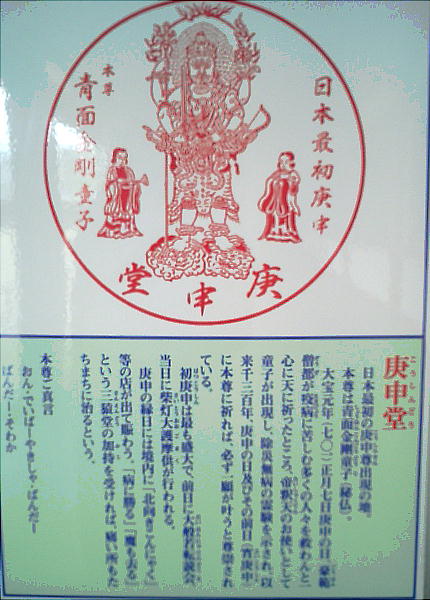 日本最初庚申
本尊
青面金剛童子
庚申堂
庚申堂
こうしんどう
日本最初の庚申尊出現の地。
本尊は青面金剛童子（秘仏）。
大宝元年（七〇一）正月七日庚申の日、豪範
僧都が疫病に苦しむ多くの人々を救わんと一
心に天に祈ったところ、帝釈天のお使いとして
童子が出現し、除災無病の霊験を示され、以
来千三百年、庚申の日及びその前日（宵庚申）
に本尊に祈れば、必ず一願が叶うと尊崇され
ている。
初庚申は最も盛大で、前日に大般若転読会、
当日に柴灯大護摩供が行われる。
庚申の縁日には境内に「北向きこんにゃく」
等の店が出て賑わう。「病に勝る」「魔も去る」
という三猿堂の加持を受ければ、痛い所もた
ちまちに治るという。
本尊ご真言
おん・でいば・やきしゃ・ばんだー
ばんだー・そわか